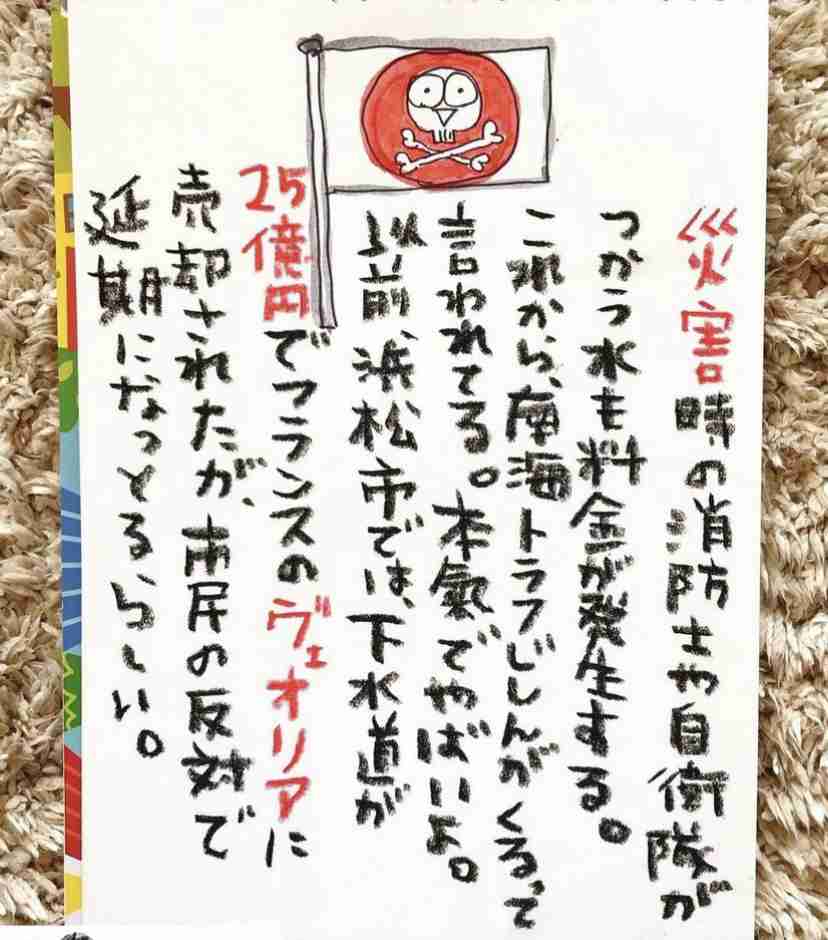 災害時の消防士や自衛隊が
つかう水も料金が発生する。
これから、南海トラフじしんがくるって
言われてる。本氣でやばいよ。
以前、浜松市では、下水道が
25億円でフランスのヴェオリアに
売却されたが、市民の反対で
延期になっとるらしい。